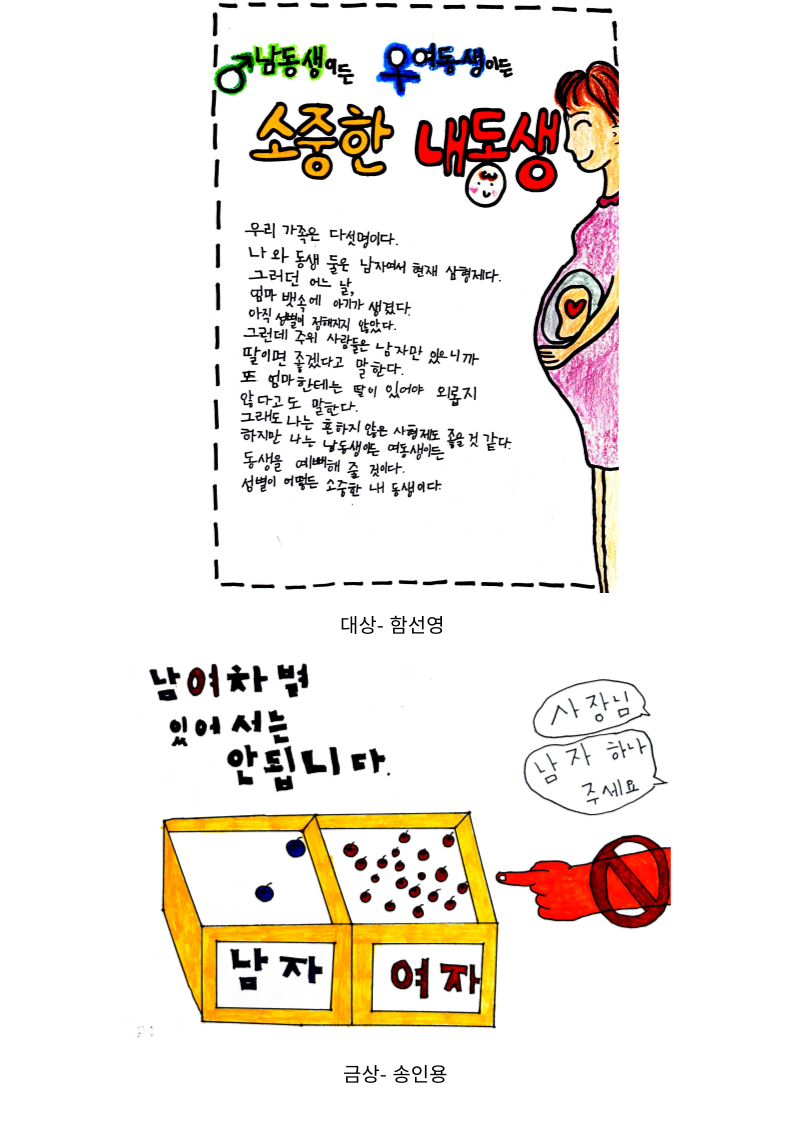 남동생이든 여동생이든
소중한 내동생
우리 가족은 다섯명이다.
나와 동생 둘은 남자여서 현재 삼형제다.
그러던 어느 날,
엄마 뱃속에 아기가 생겼다.
아직 성별이 정해지지 않았다.
그런데 주위 사람들은 남자만 있으니까
딸이면 좋겠다고 말한다.
또 엄마한테는 딸이 있어야 외롭지
않다고도 말한다.
그래도 나는 흔하지 않은 사형제도 좋을 것 같다.
하지만 나는 남동생이든 여동생이든
동생을 예뻐해 줄 것이다.
성별이 어떻든 소중한 내 동생이다.
대상- 함선영
남여차별
있어서는
안됩니다.
사장님
남자 하나
주세요
남자
여자
금상- 송인용